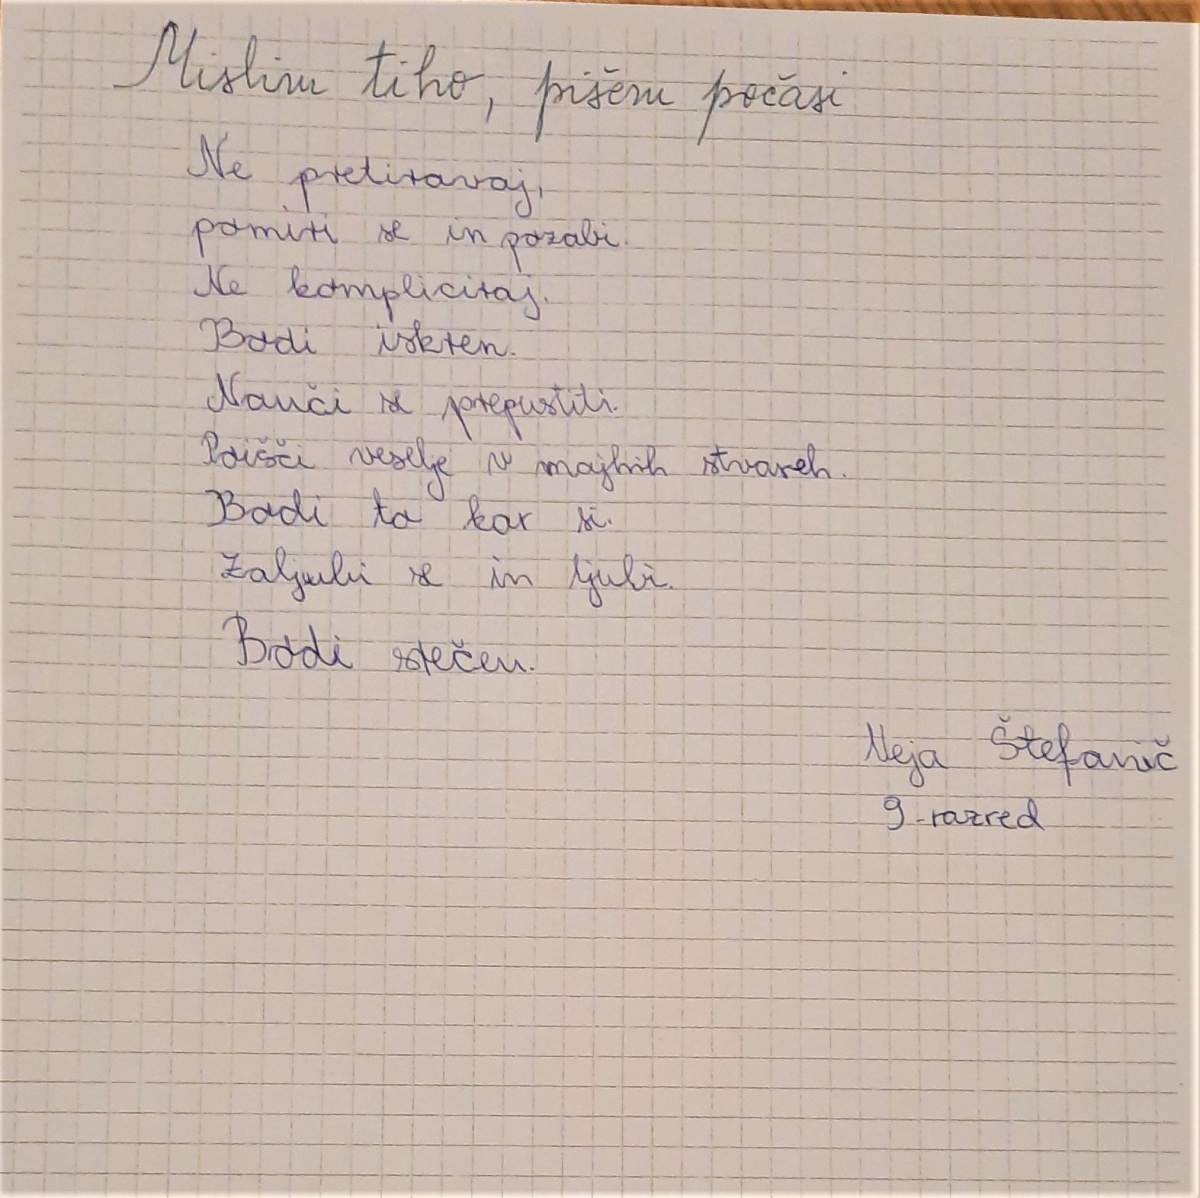 Mislim tiho, pišem počasi
Ne pretiravaj,
pomiri se in pozabi.
Ne kompliciraj.
Bodi iskren.
Nauči se prepustiti.
Poišči veselje v majhnih stvareh.
Bodi to kar si.
Zaljubi se in ljubi.
Bodi srečen.
Neja Štefanič
9. razred